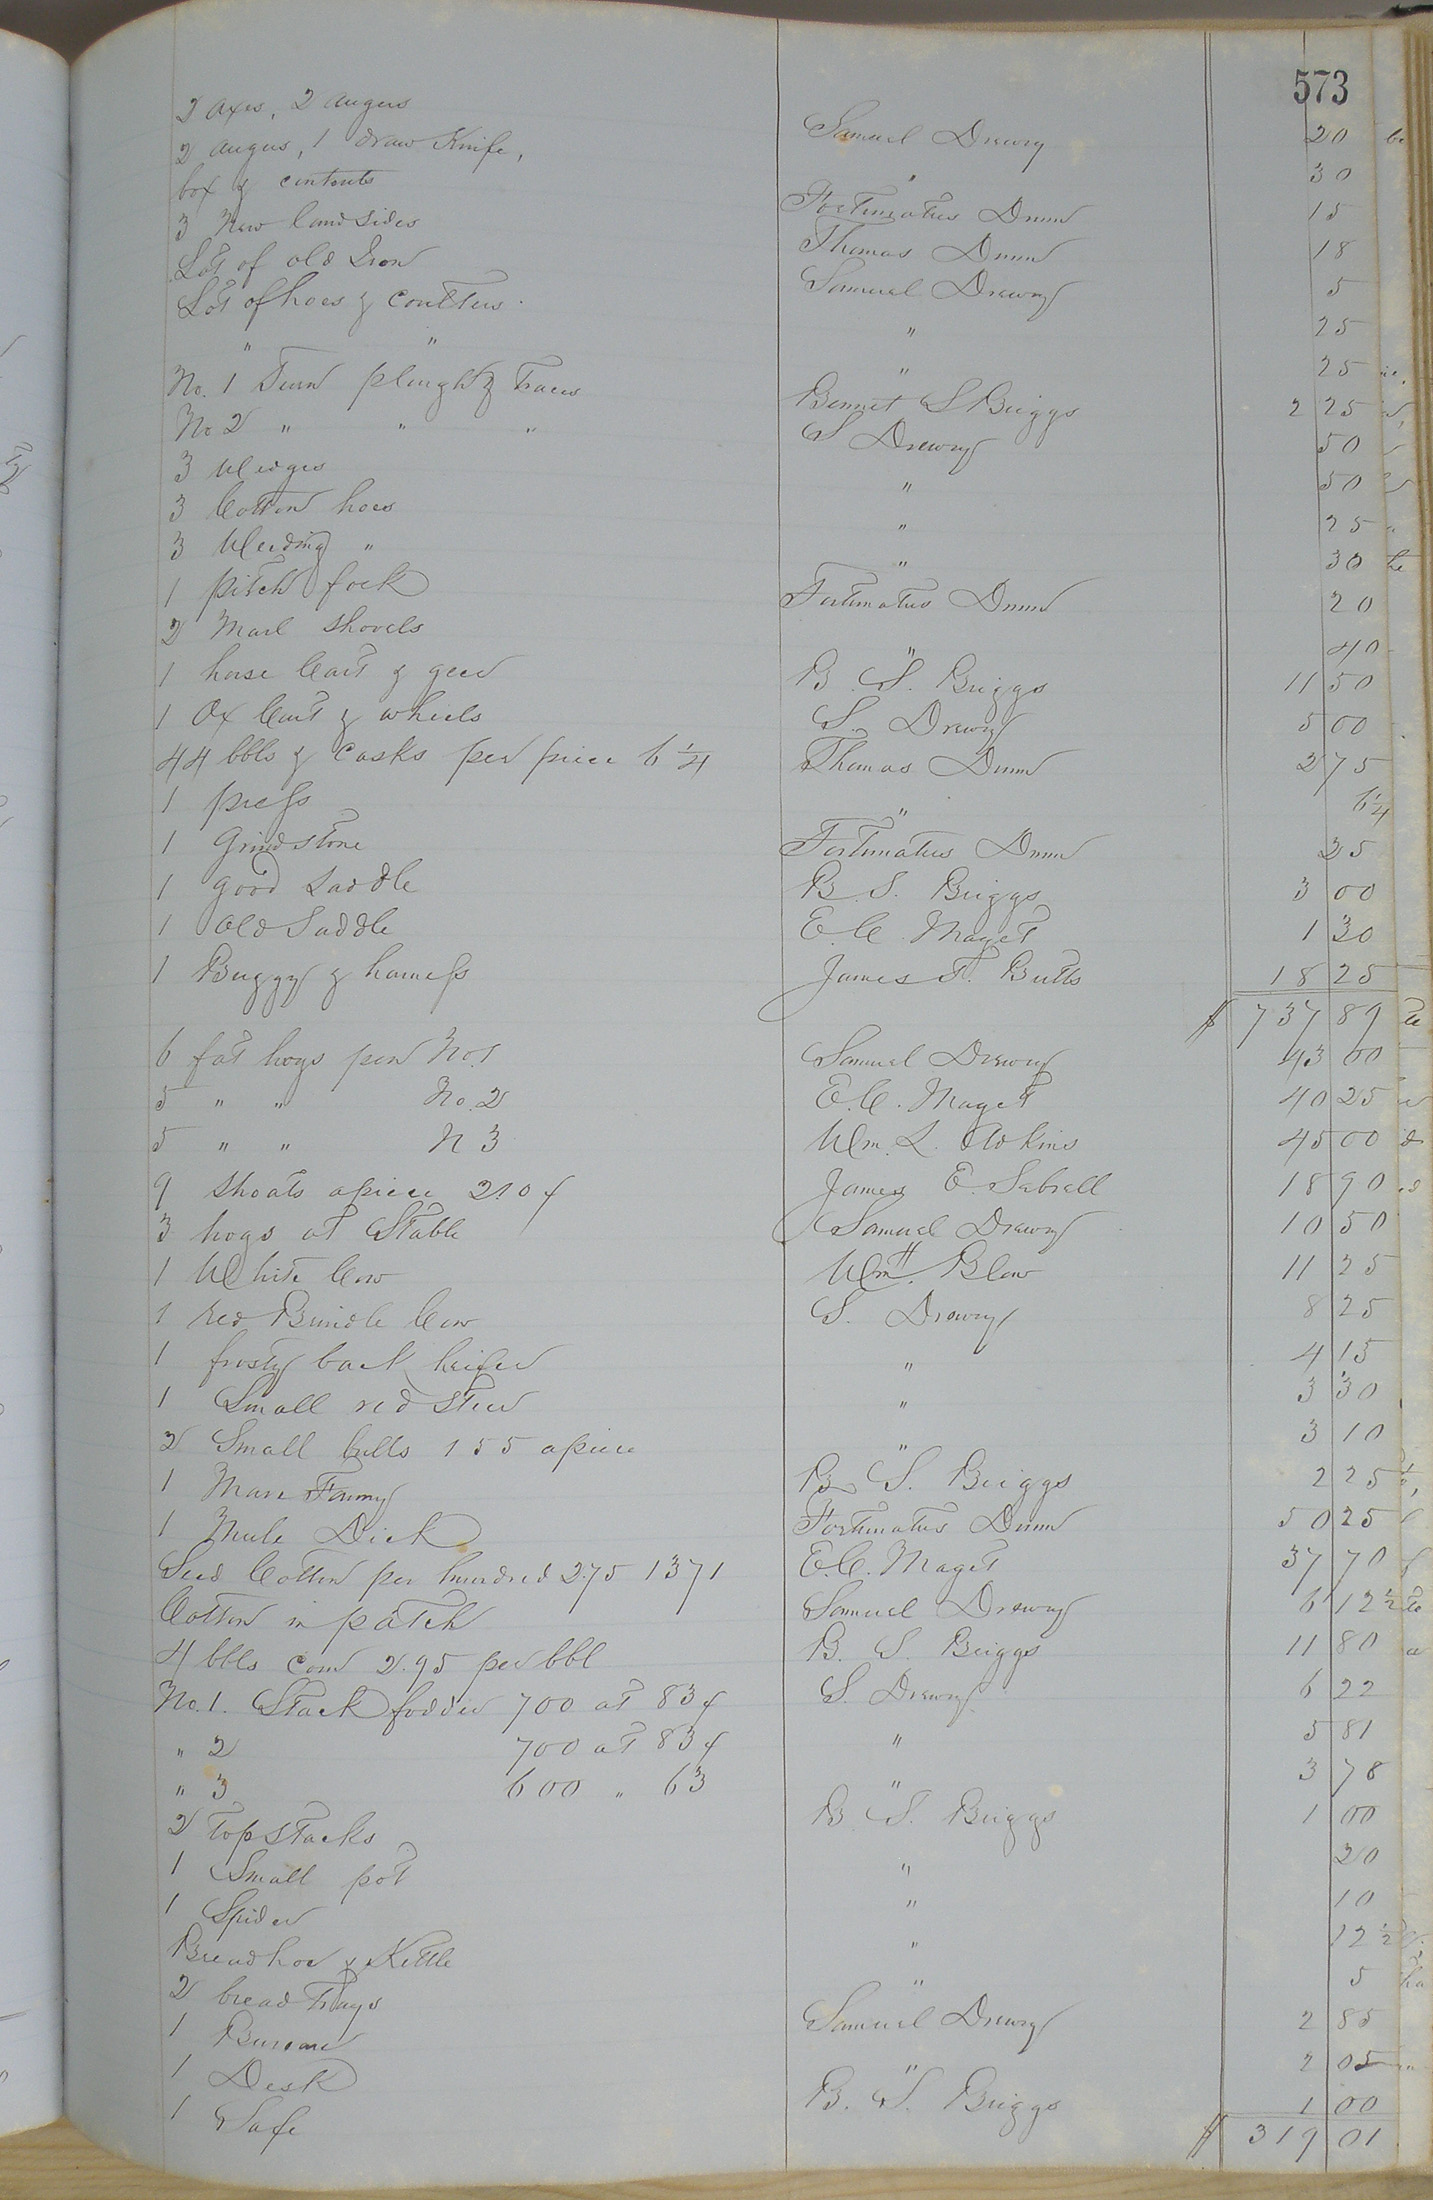 573
2 axes, 2 augers Samuel Drewry 20
2 augers, 1 draw Knife, " 30
box & contents Fortunatus Dunn 15
3 New land sides Thomas Dunn 18
Lot of old Iron Samuel Drewry 5
Lot of hoes & coulters " 25
" " " 25
No. 1 Turn plough & Traces Bennet S Briggs 2 25
No 2 " " " S Drewry 50
3 Wedges " 50
3 Cotton hoes " 25
3 Weeding " " 30
1 pitch fork Fortunatus Dunn 20
2 Marl shovels " 40
1 horse Cart & geer B. S. Briggs 11 50
1 Ox Cart & wheels S. Drewry 5 00
44 bbls & casks per piece 6 1/4 Thomas Dunn 2 75
1 press " 6 1/4
1 Grindstone Fortunatus Dunn 25
1 good Saddle B. S. Briggs 3 00
1 Old Saddle E. C. Maget 1 30
1 Buggy & harness James T. Butts 18 25
$ 737 89
6 fat hogs pen No. 1 Samuel Drewry 43 00
5 " " No. 2 E. C. Maget 40 25
5 " " N 3 Wm. L. Adkins 45 00
9 shoats apiece 2.10 ¢ James E. Sebrell 18 90
3 hogs at Stable Samuel Drewry 10 50
1 White Cow Wm H. Blow 11 25
1 red Brindle Cow S. Drewry 8 25
1 frosty back heifer " 4 15
1 Small red steer " 3 30
2 Small bulls 1 55 apiece " 3 10
1 Mare Fanny B. S. Briggs 2 25
1 Mule Dick Fortunatus Dunn 50 25
Seed Cotton per hundred 2.75 1371 E. C. Maget 37 70
Cotton in patch Samuel Drewry 6 12 1/2
4 bbls corn 2.95 per bbl B. S. Briggs 11 80
No. 1. Stack fodder 700 at 83 ¢ S. Drewry 6 22
" 2 700 at 83 ¢ " 5 81
" 3 600 " 63 " 3 78
2 top stacks B. S. Briggs 1 00
1 Small pot " 20
1 Spider " 10
Bread hoe & Kettle " 12 1/2
2 bread Trays " 5
1 Bureau Samuel Drewry 2 85
1 Desk " 2 05
1 Safe B. S. Briggs 1 00
$ 319 01